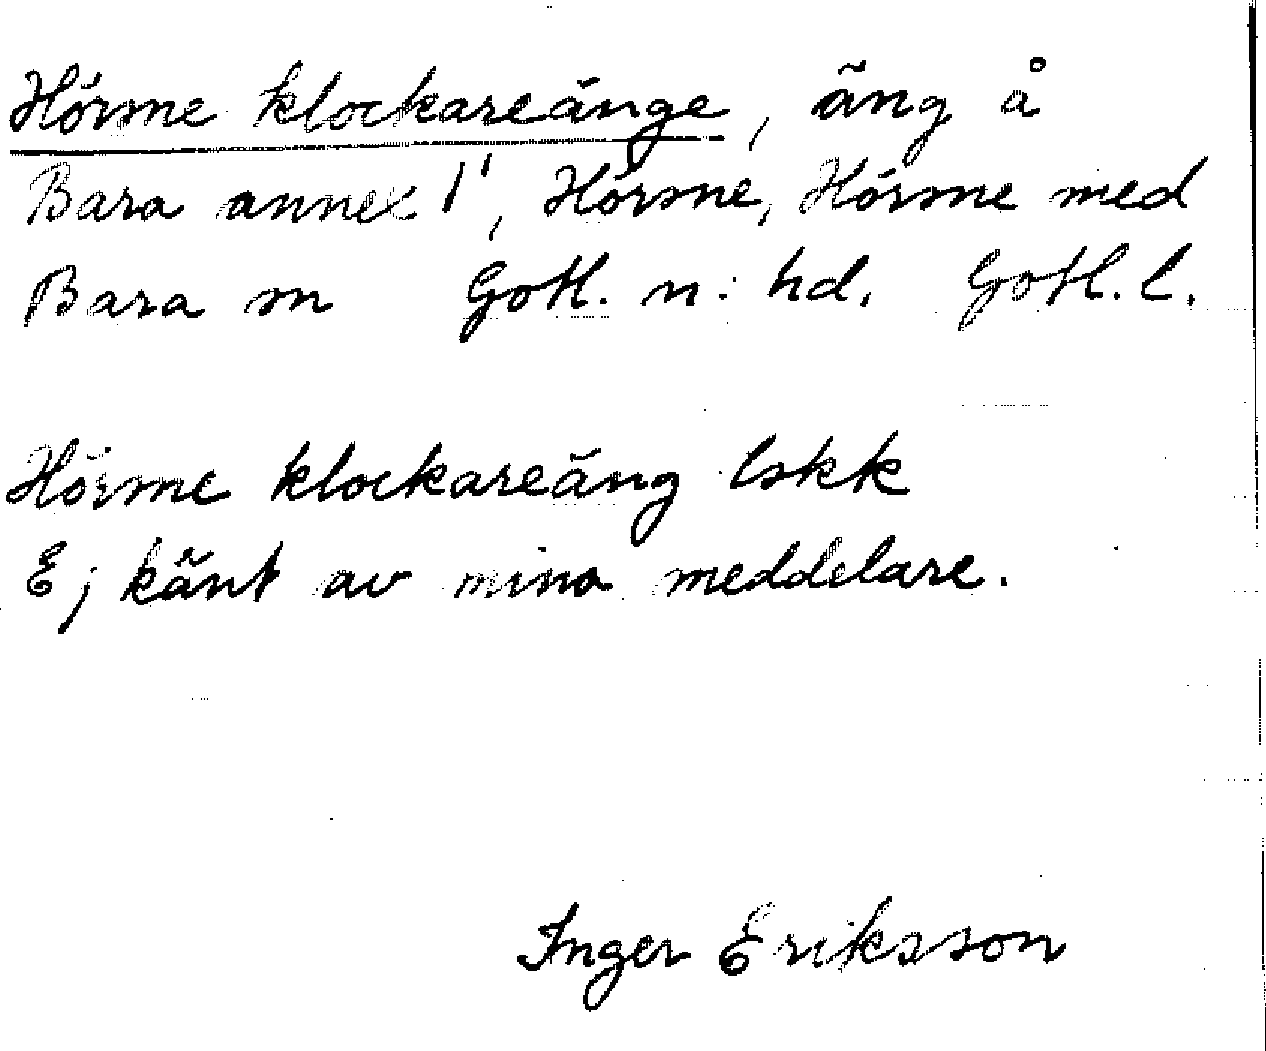 Hörsne klockareänge, äng å
Bara annex 1¹, Hörsne, Hörsne med
Bara sn Gotl. n. hd. Gotl. l.
Hörsne klockareäng lskk
Ej känt av mina meddelare.
Inger Eriksson